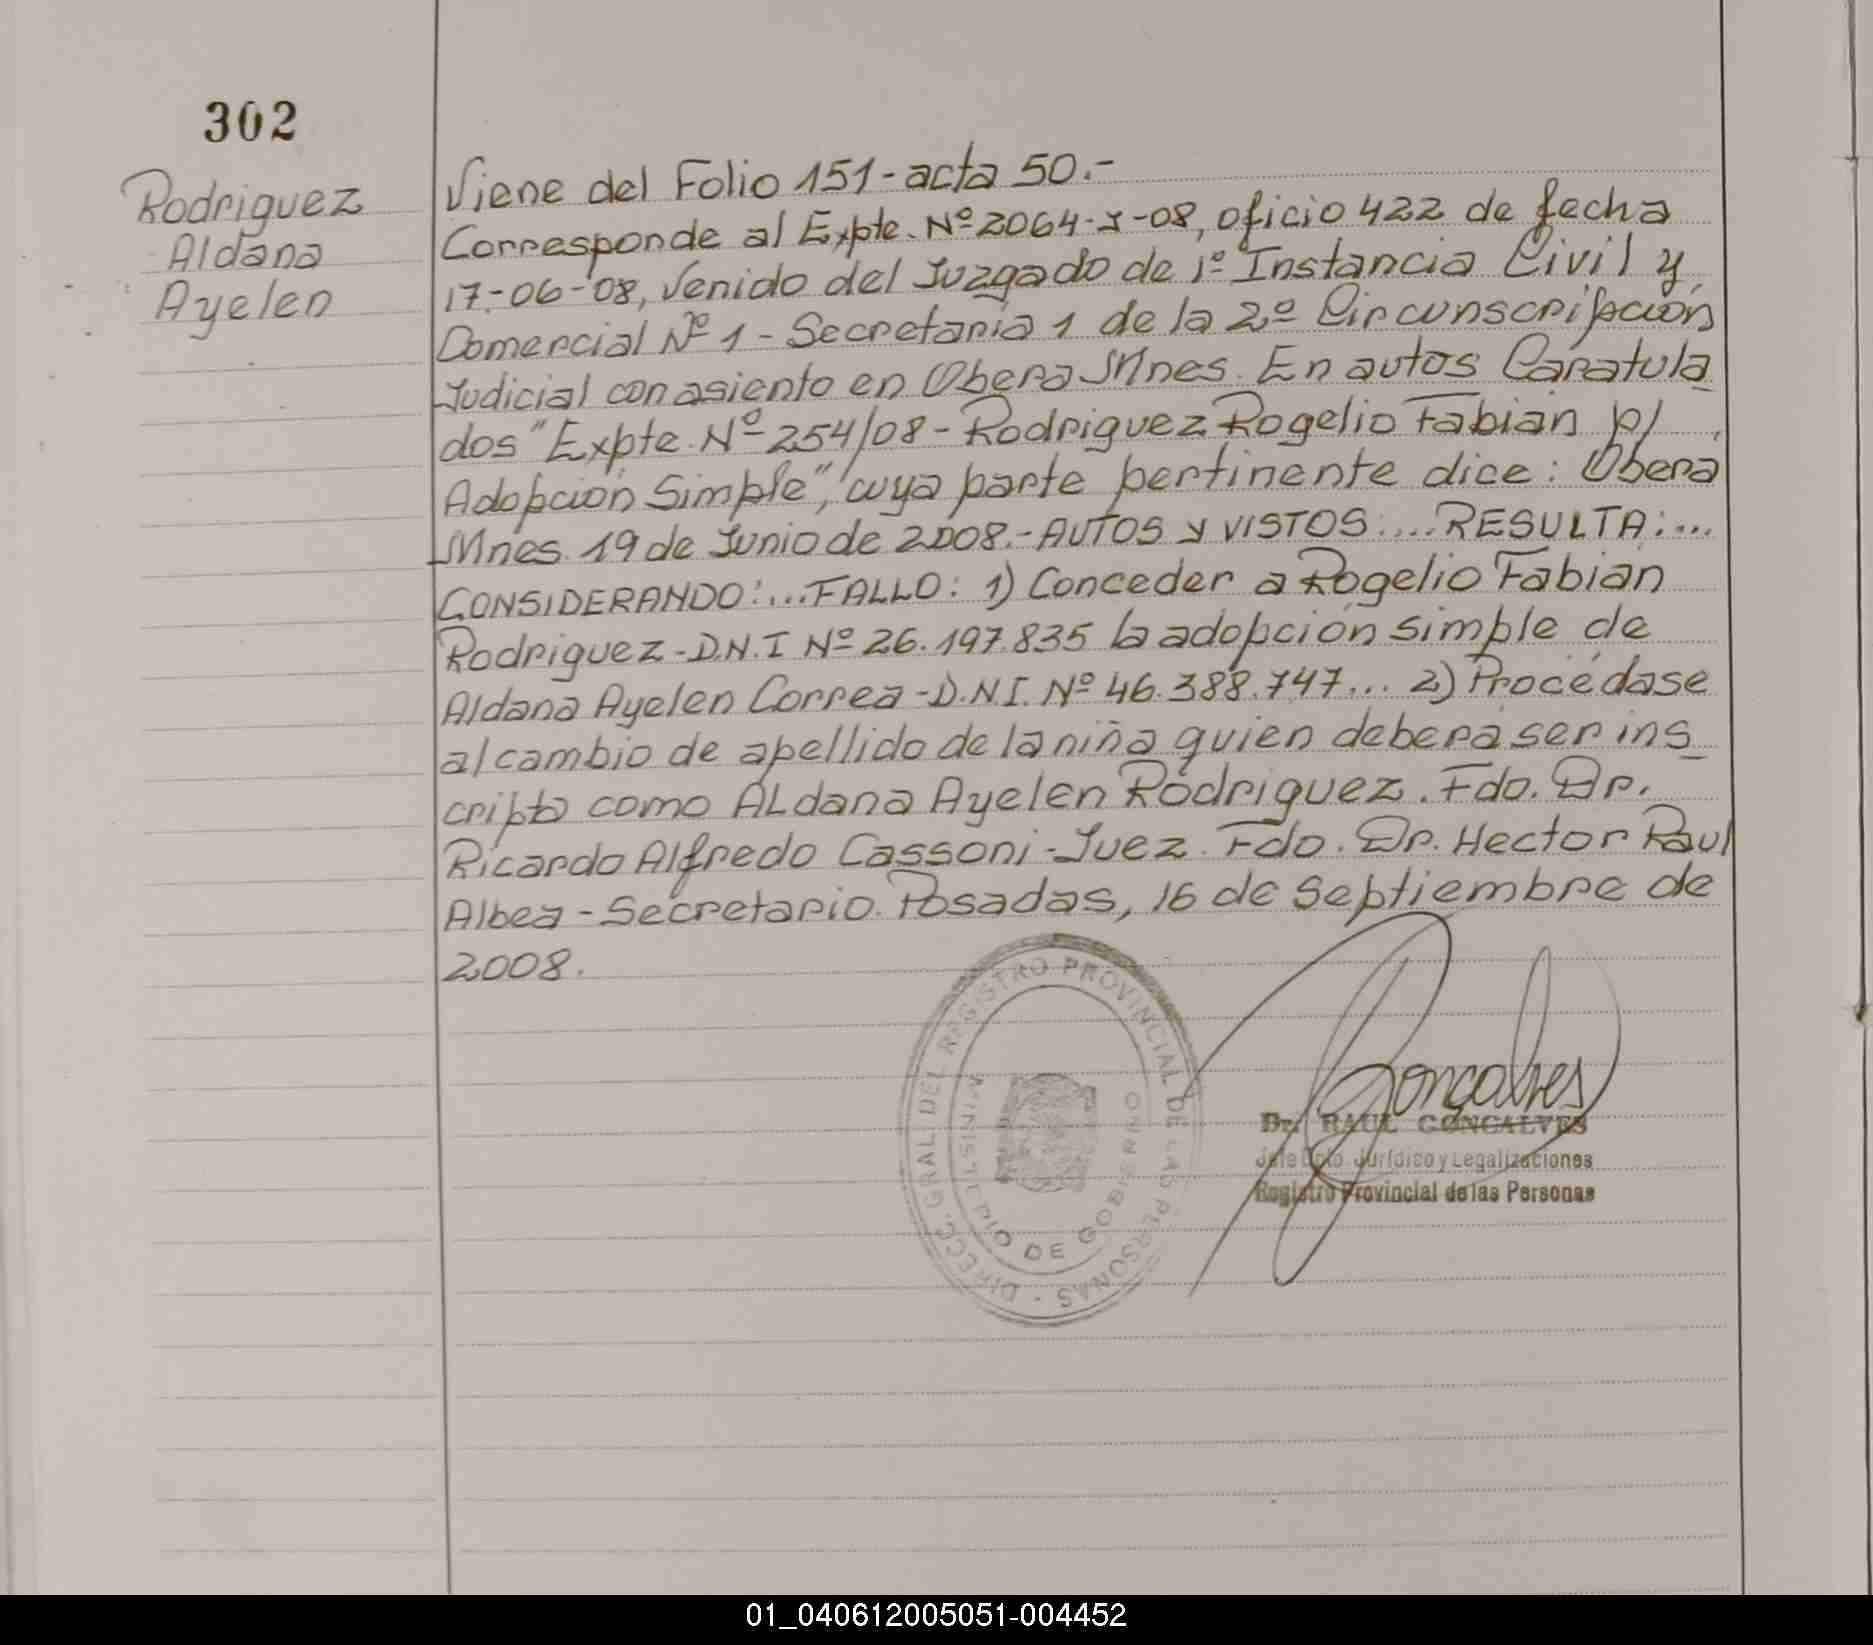 302
Rodriguez
Aldana
Ayelen
Viene del Folio 151-acta 50.-
Corresponde al Expte. Nº 2064- -08, oficio 422 de fecha
17-06-08, Venido del Juzgado de 1º Instancia Civil y
Comercial Nº 1 - Secretaria 1 de la 2º Circunscripción
Judicial con asiento en Obera Mnes. En autos Caratula
dos "Expte. Nº 254/08 - Rodriguez Rogelio Fabian p/
Adopción Simple", cuya parte pertinente dice: Obera
Mnes. 19 de Junio de 2008.- AUTOS y VISTOS:... RESULTA:...
CONSIDERANDO:... FALLO: 1) Conceder a Rogelio Fabian
Rodriguez - D.N.I Nº 26.197.835 la adopción simple de
Aldana Ayelen Correa - D.N.I. Nº 46.388.747... 2) Procédase
al cambio de apellido de la niña quien deberá ser ins
cripto como ALdana Ayelen Rodriguez. Fdo. Dr.
Ricardo Alfredo Cassoni - Juez. Fdo. Dr. Hector Raul
Albea - Secretario. Posadas, 16 de Septiembre de
2008.
DIRECC. GRAL. DEL REGISTRO PROVINCIAL DE LAS PERSONAS -
MINISTERIO DE GOBIERNO
Gonçalves
Dr. RAUL GONCALVES
Jefe Dpto. Jurídico y Legalizaciones
Registro Provincial de las Personas
01_040612005051-004452